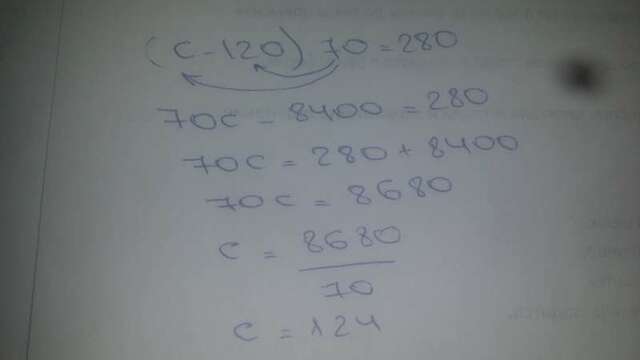 (c - 120) 70 = 280
70c - 8400 = 280
70c = 280 + 8400
70c = 8680
c = 8680
70
c = 124